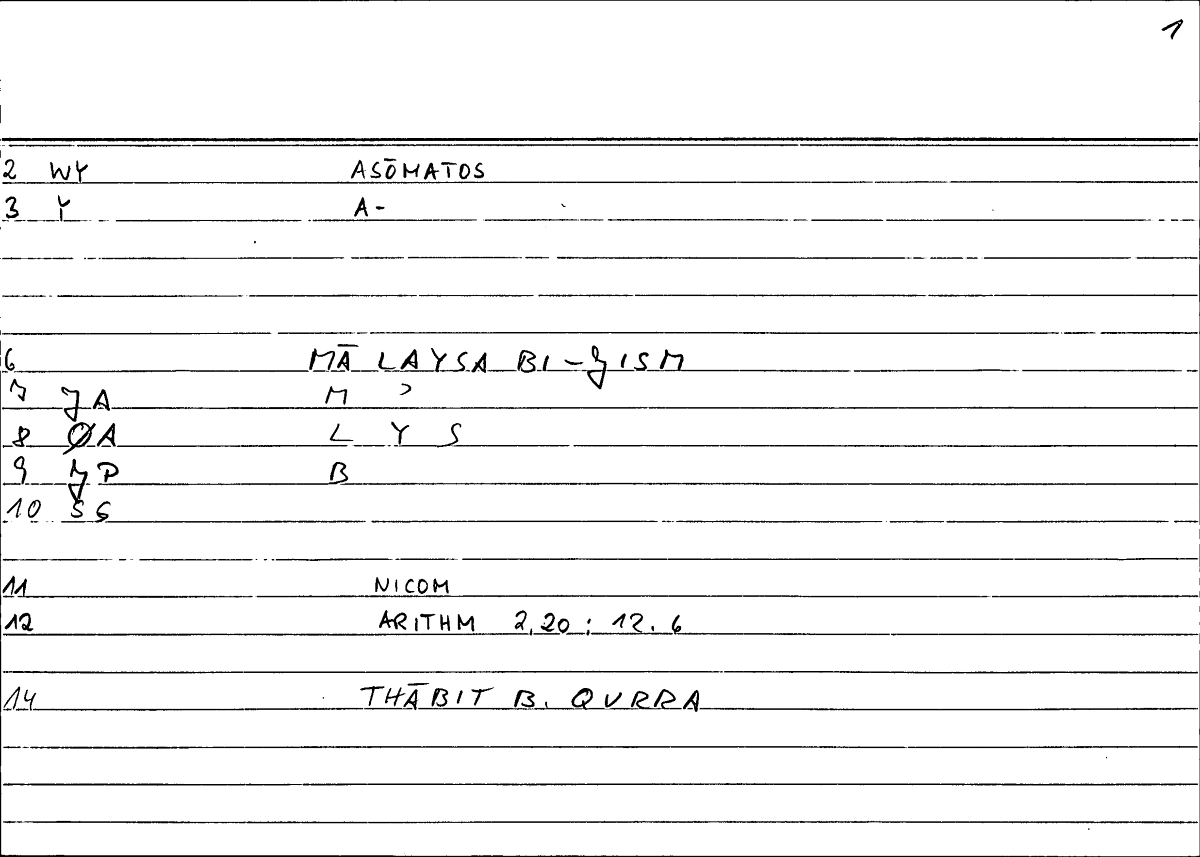 1
2 WY ASŌMATOS
3 Y A-
6 MĀ LAYSA BI-ǦISM
7 JA M ʾ
8 ØA L Y S
9 JP B
10 SG
11 NICOM
12 ARITHM 2,20 : 12.6
14 THĀBIT B. QURRA